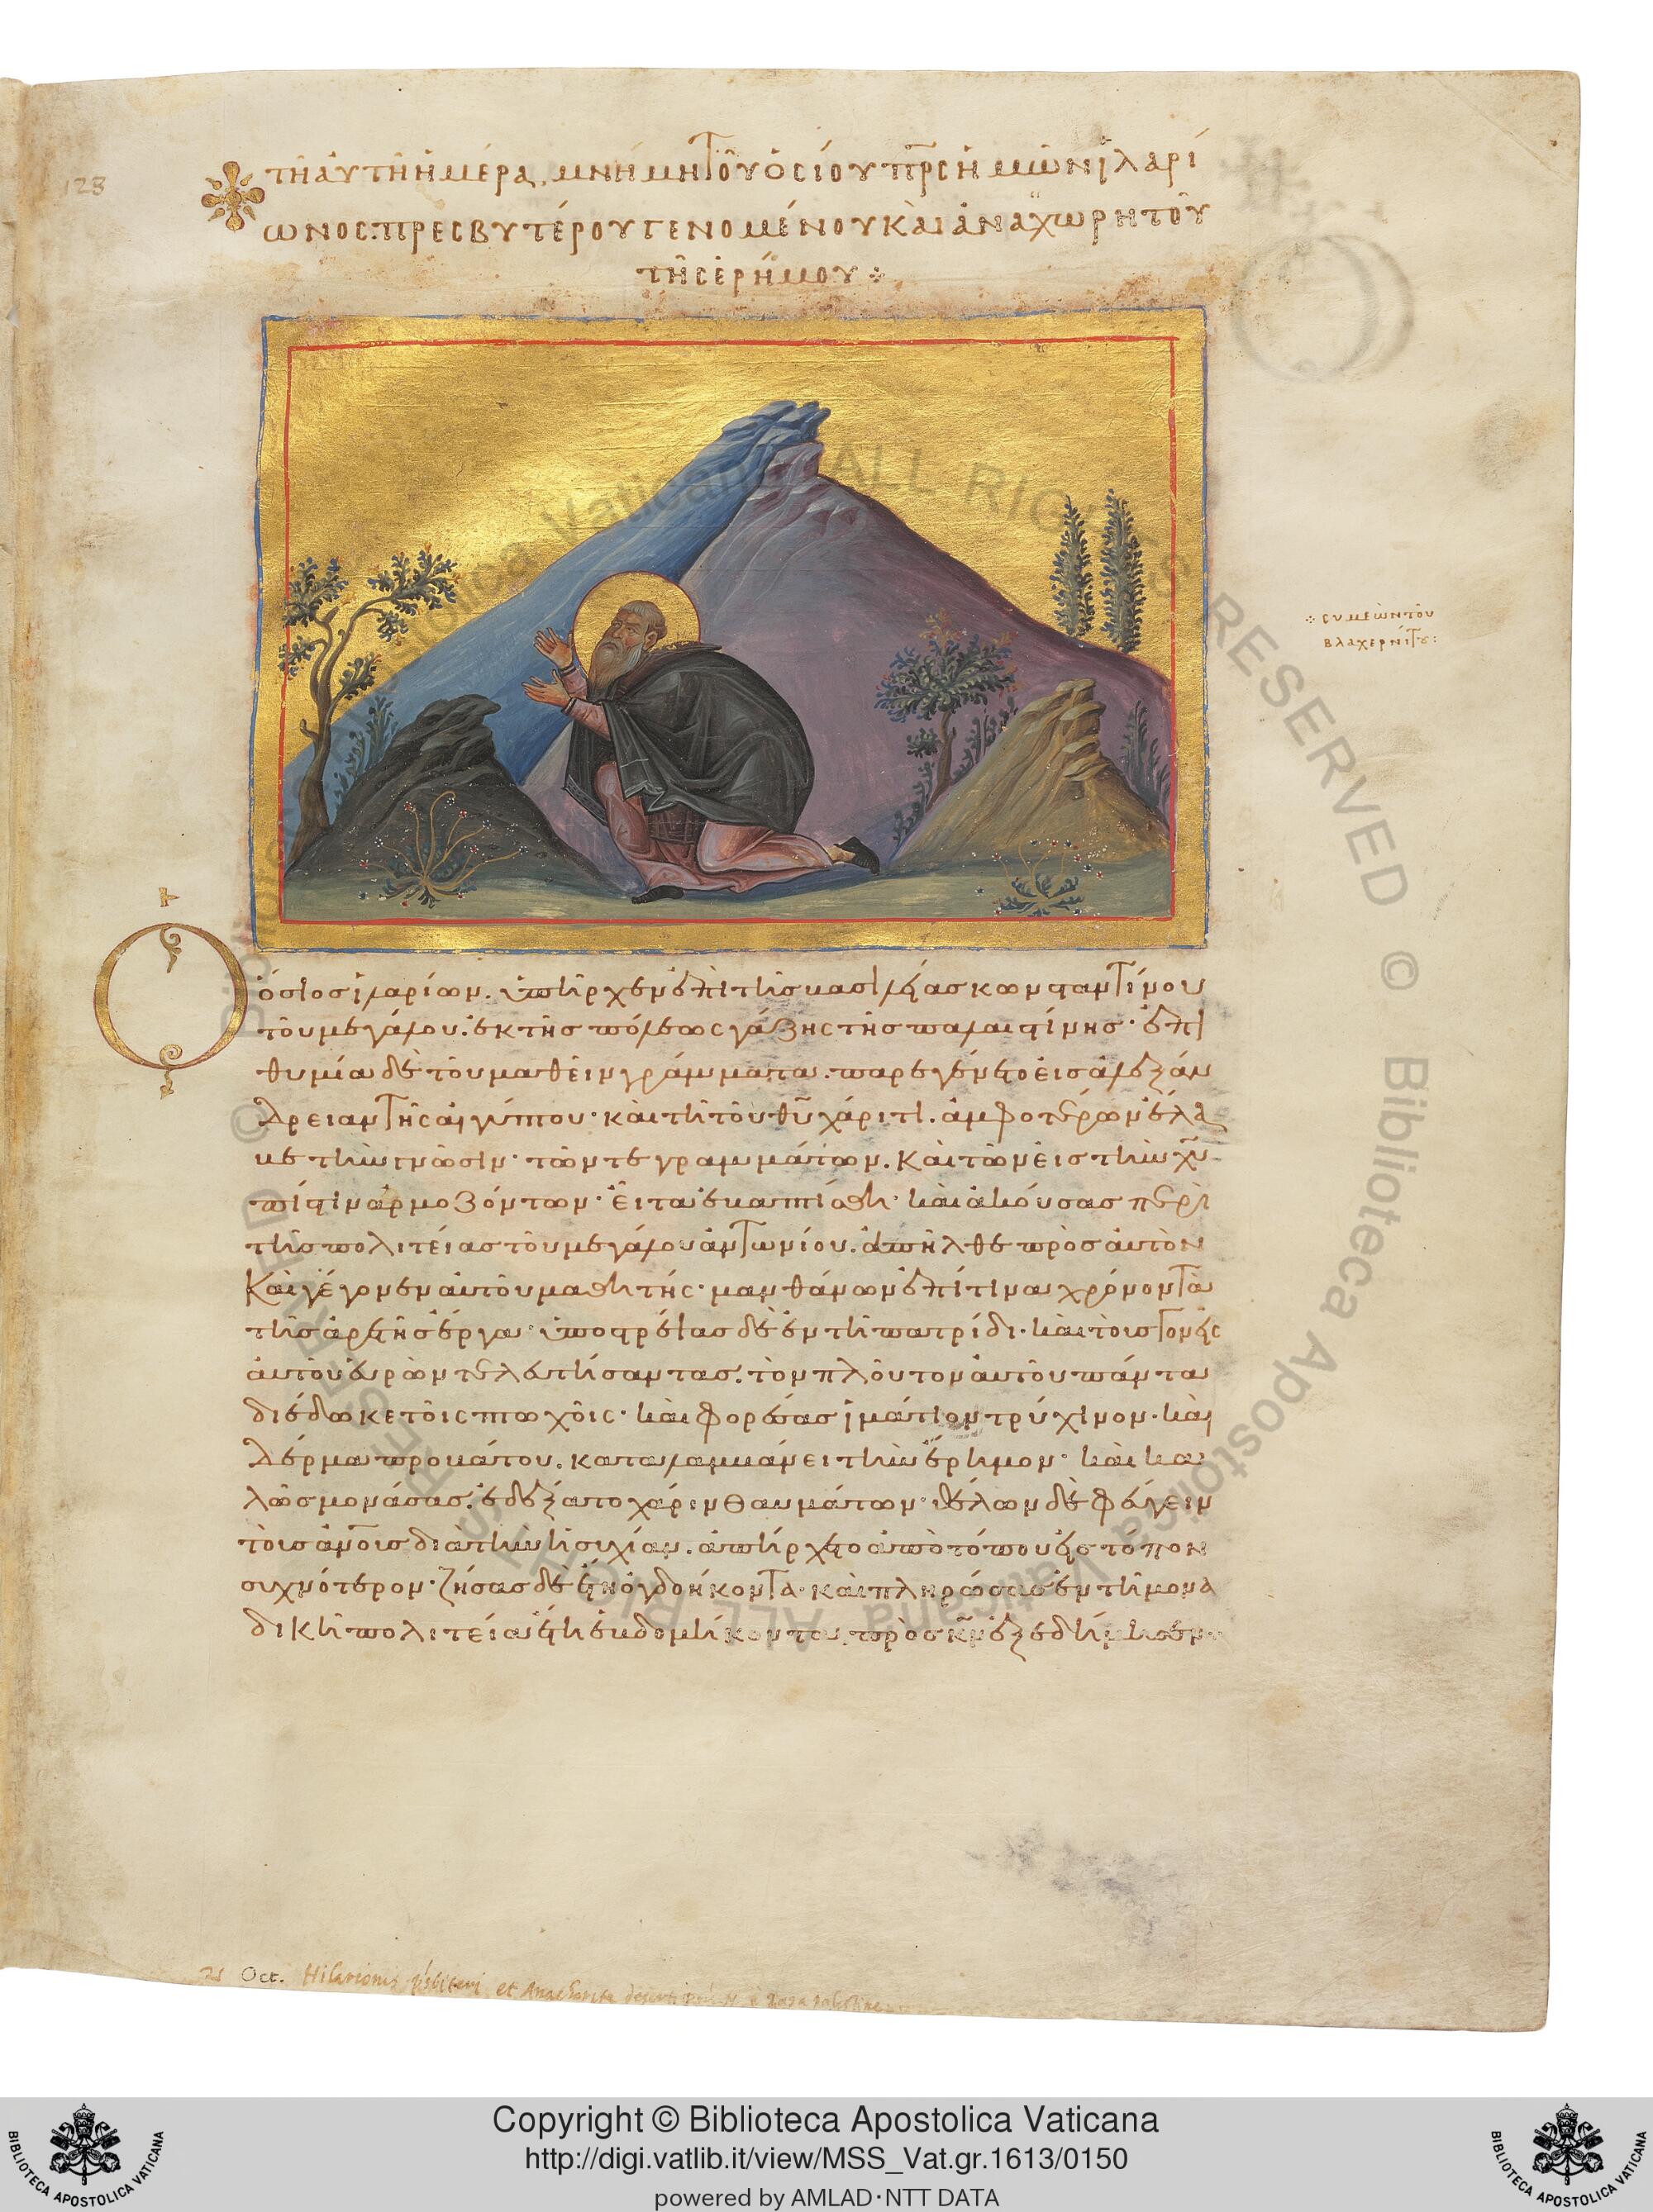 128
τῆ αὐτῆ ἡμέρα, μνήμη τοῦ ὁσίου πρσ ἡμῶν ἱλαρί
ωνος πρεσβυτέρου γενομένου καὶ ἀναχωρητοῦ
τῆς ἐρήμου
συμεὼν τοῦ
βλαχερνίτου
Ὁ ὅσιος ἱλαρίων. ὑπῆρχεν ἐπὶ τῆς βασιλείας κωνσταντίνου
τοῦ μεγάλου. ἐκ τῆς πόλεως γάζης τῆς παλαιστίνης· ἐπι
θυμία δὲ τοῦ μαθεῖν γράμματα. παρεγένετο εἰς ἀλεξάν
δρειαν τῆς αἰγύπτου· καὶ τῆ τοῦ θυ χάριτι. ἀμφοτέρων ἔλα
βε τὴν γνῶσιν· τῶν τε γραμμάτων. καὶ τῶν εἰς τὴν χυ
πίστιν ἁρμοζόντων· εἶτα ἐβαπτίσθη· καὶ ἀκούσας περὶ
τῆς πολιτείας τοῦ μεγάλου ἀντωνίου. ἀπῆλθε πρὸς αὐτὸν
καὶ γέγονεν αὐτοῦ μαθητής· μανθάνων ἐπί τινα χρόνον τὰ
τῆς ἀρετῆς ἔργα· ὑποστρέψας δὲ ἐν τῆ πατρίδι· καὶ τοὺς γονεῖς
αὐτοῦ εὑρὼν τελευτήσαντας. τὸν πλοῦτον αὐτοῦ πάντα
διέδωκε τοῖς πτωχοῖς· καὶ φορέσας ἱμάτιον τρύχινον. καὶ
δέρμα προβάτου. καταλαμβάνει τὴν ἔρημον· καὶ κα
λῶς μονάσας. ἐδέξατο χάριν θαυμάτων· θέλων δὲ φεύγειν
τοὺς ἀνους διὰ τὴν ἡσυχίαν. ἀπήρχετο ἀπὸ τόπου εἰς τόπον
συχνότερον· ζήσας δὲ ἔτη ὀγδοήκοντα. καὶ πληρώσας ἐν τῆ μονα
δικῆ πολιτεία ἔτη ἑβδομήκοντα. πρὸς κν ἐξεδήμησεν
21 Oct. Hilarionis et Anachoritae deserti
Copyright © Biblioteca Apostolica Vaticana
http://digi.vatlib.it/view/MSS_Vat.gr.1613/0150
powered by AMLAD·NTT DATA
BIBLIOTECA APOSTOLICA VATICANA
BIBLIOTECA APOSTOLICA VATICANA
© Biblioteca Apostolica Vaticana ALL RIGHTS RESERVED © Biblioteca Apostolica Vaticana ALL RIGHTS RESERVED